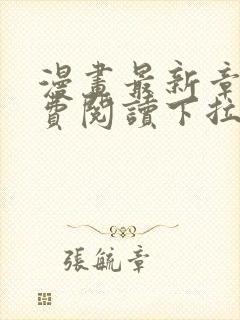 漫畫最新章
費閱讀下拉
張毓章